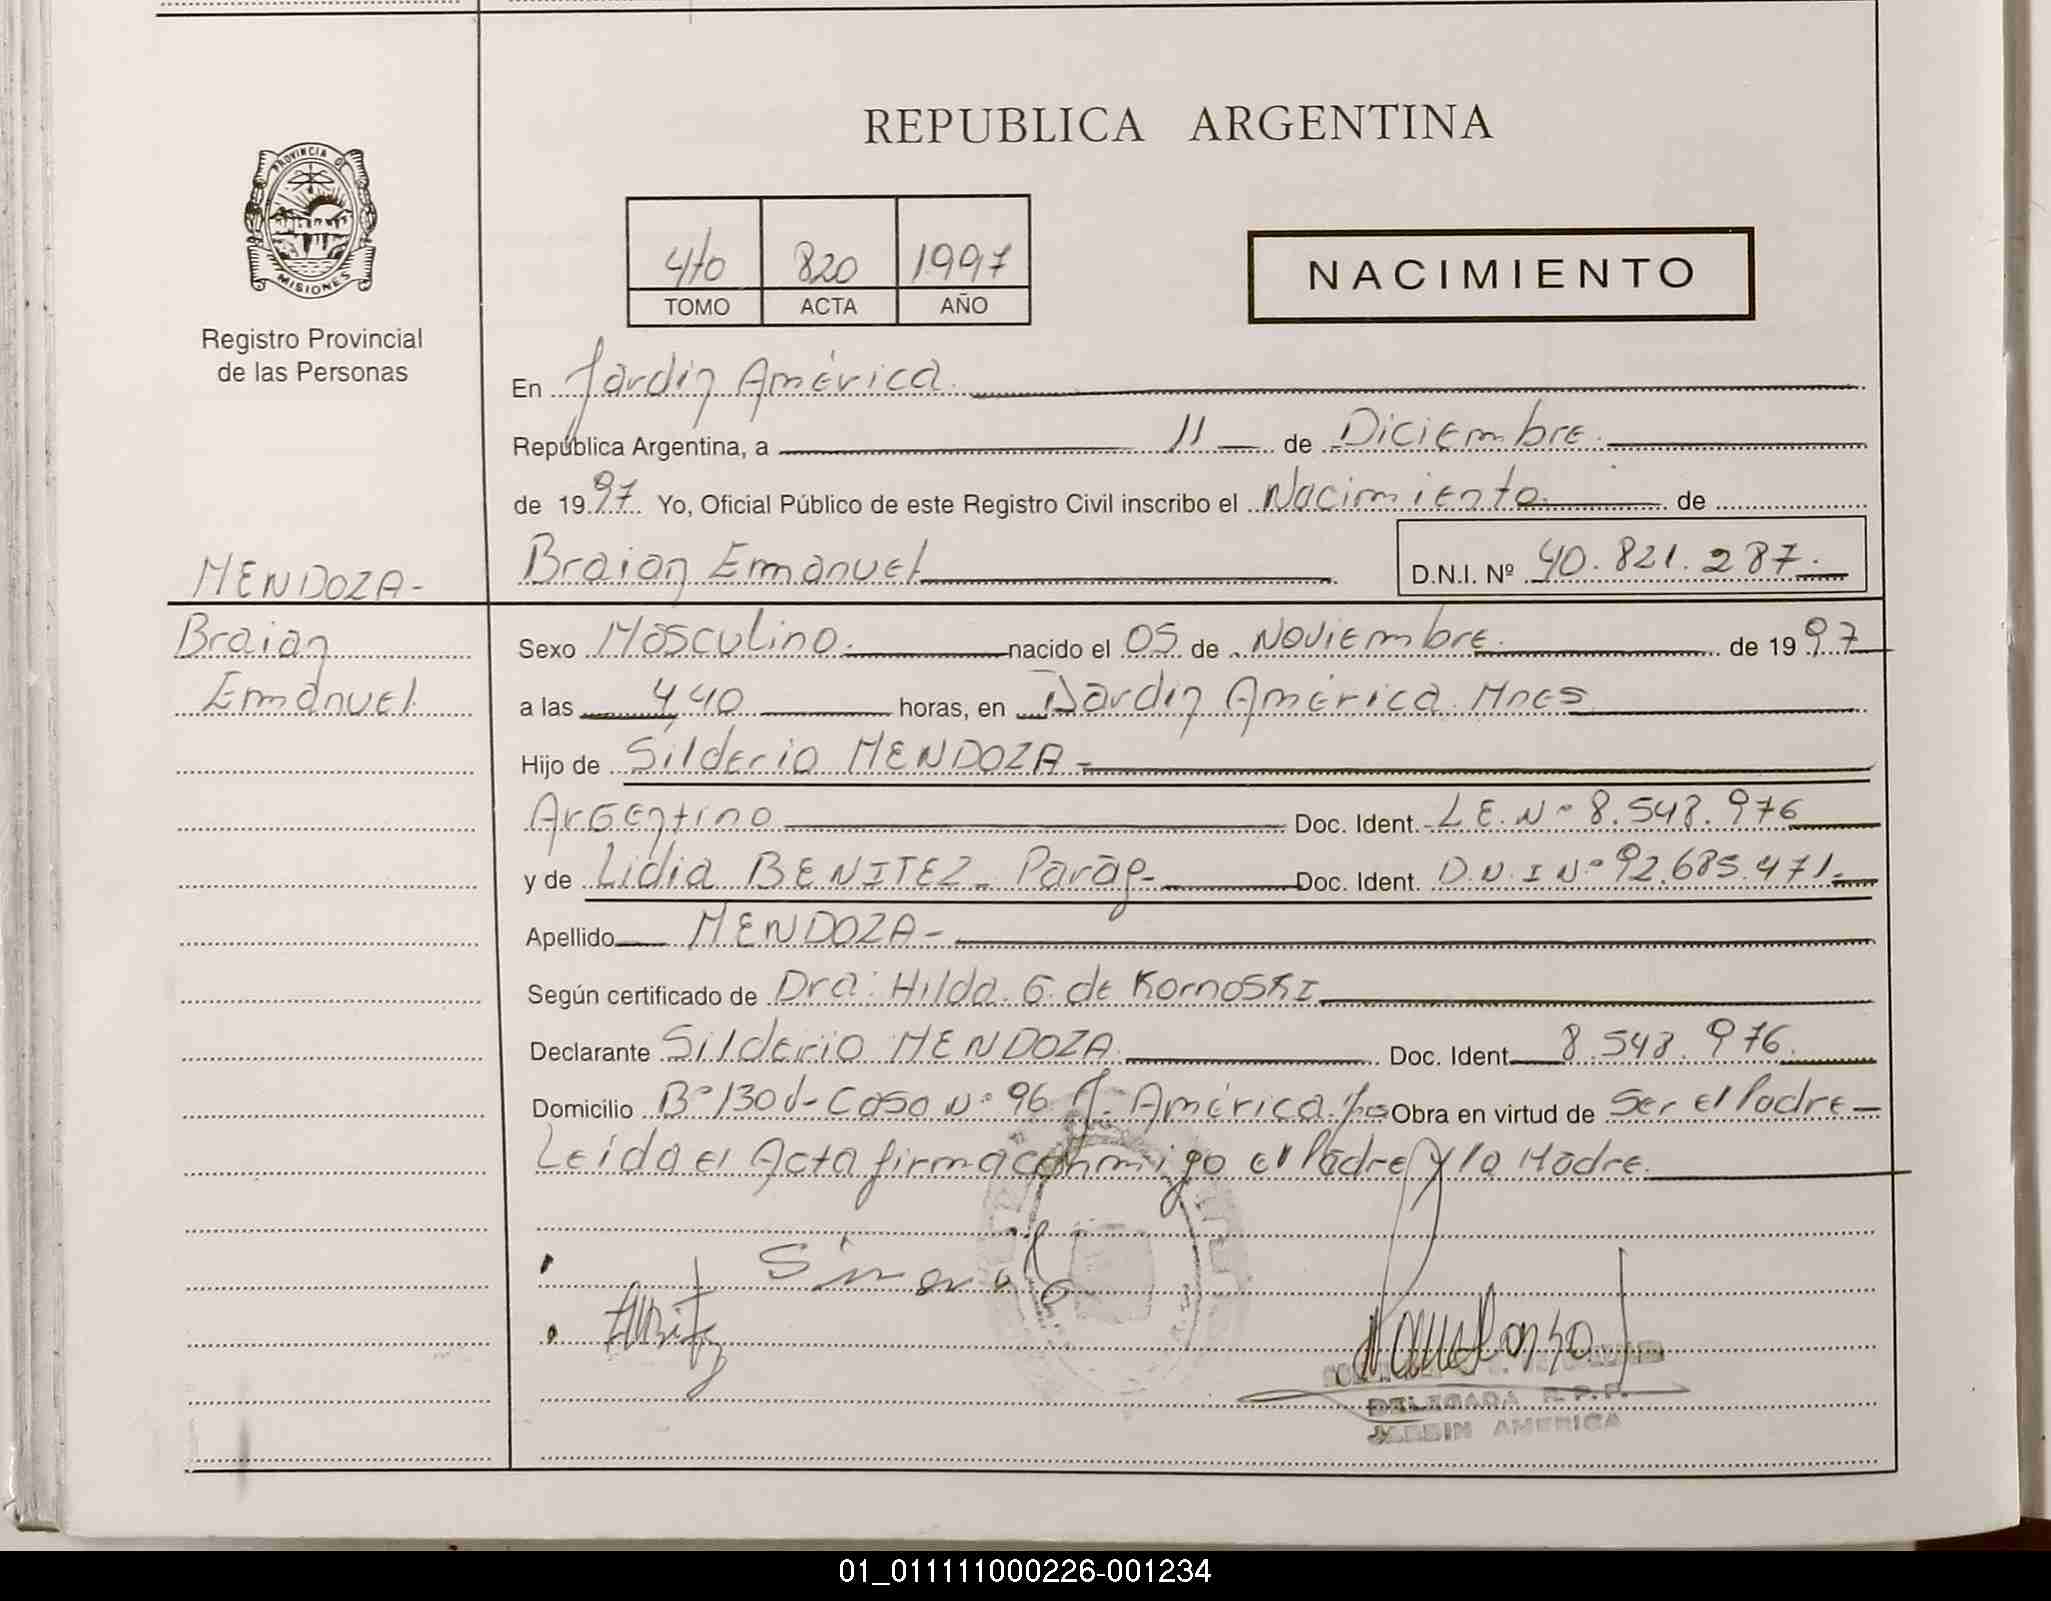 REPUBLICA ARGENTINA
PROVINCIA DE
MISIONES
Registro Provincial
de las Personas
4to 820 1997
TOMO ACTA AÑO
NACIMIENTO
En Jardin América.
República Argentina, a 11 de Diciembre.
de 1997. Yo, Oficial Público de este Registro Civil inscribo el Nacimiento de
MENDOZA-
Braian Emanuel D.N.I. Nº 40.821.287.
Braian
Emanuel
Sexo Masculino. nacido el 05 de Noviembre. de 1997
a las 440 horas, en Jardin América Mnes
Hijo de Silderio MENDOZA-
Argentino Doc. Ident. L.E. Nº 8.548.976
y de Lidia BENITEZ- Parag- Doc. Ident. D.N.I Nº 92.685.471.
Apellido MENDOZA-
Según certificado de Dra: Hilda. G. de KornosKI
Declarante Silderio MENDOZA. Doc. Ident. 8.548.976.
Domicilio Bº 130 v- Casa Nº 96 J. América. Obra en virtud de Ser el Padre-
Leida el Acta firma conmigo el Padre y la Madre.
DELEGADA R.P.P.
JARDIN AMERICA
01_011111000226-001234